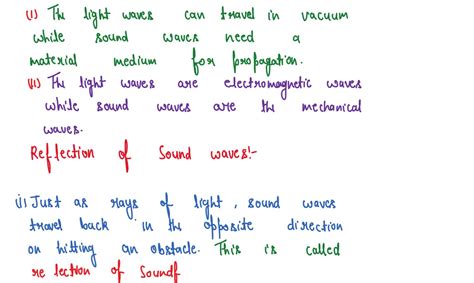 (i) The light waves can travel in vacuum
while sound waves need a
material medium for propagation.
(ii) The light waves are electromagnetic waves
while sound waves are the mechanical
waves.
Reflection of Sound waves:-
i) Just as rays of light, sound waves
travel back in the opposite direction
on hitting an obstacle. This is called
re lection of Soundf